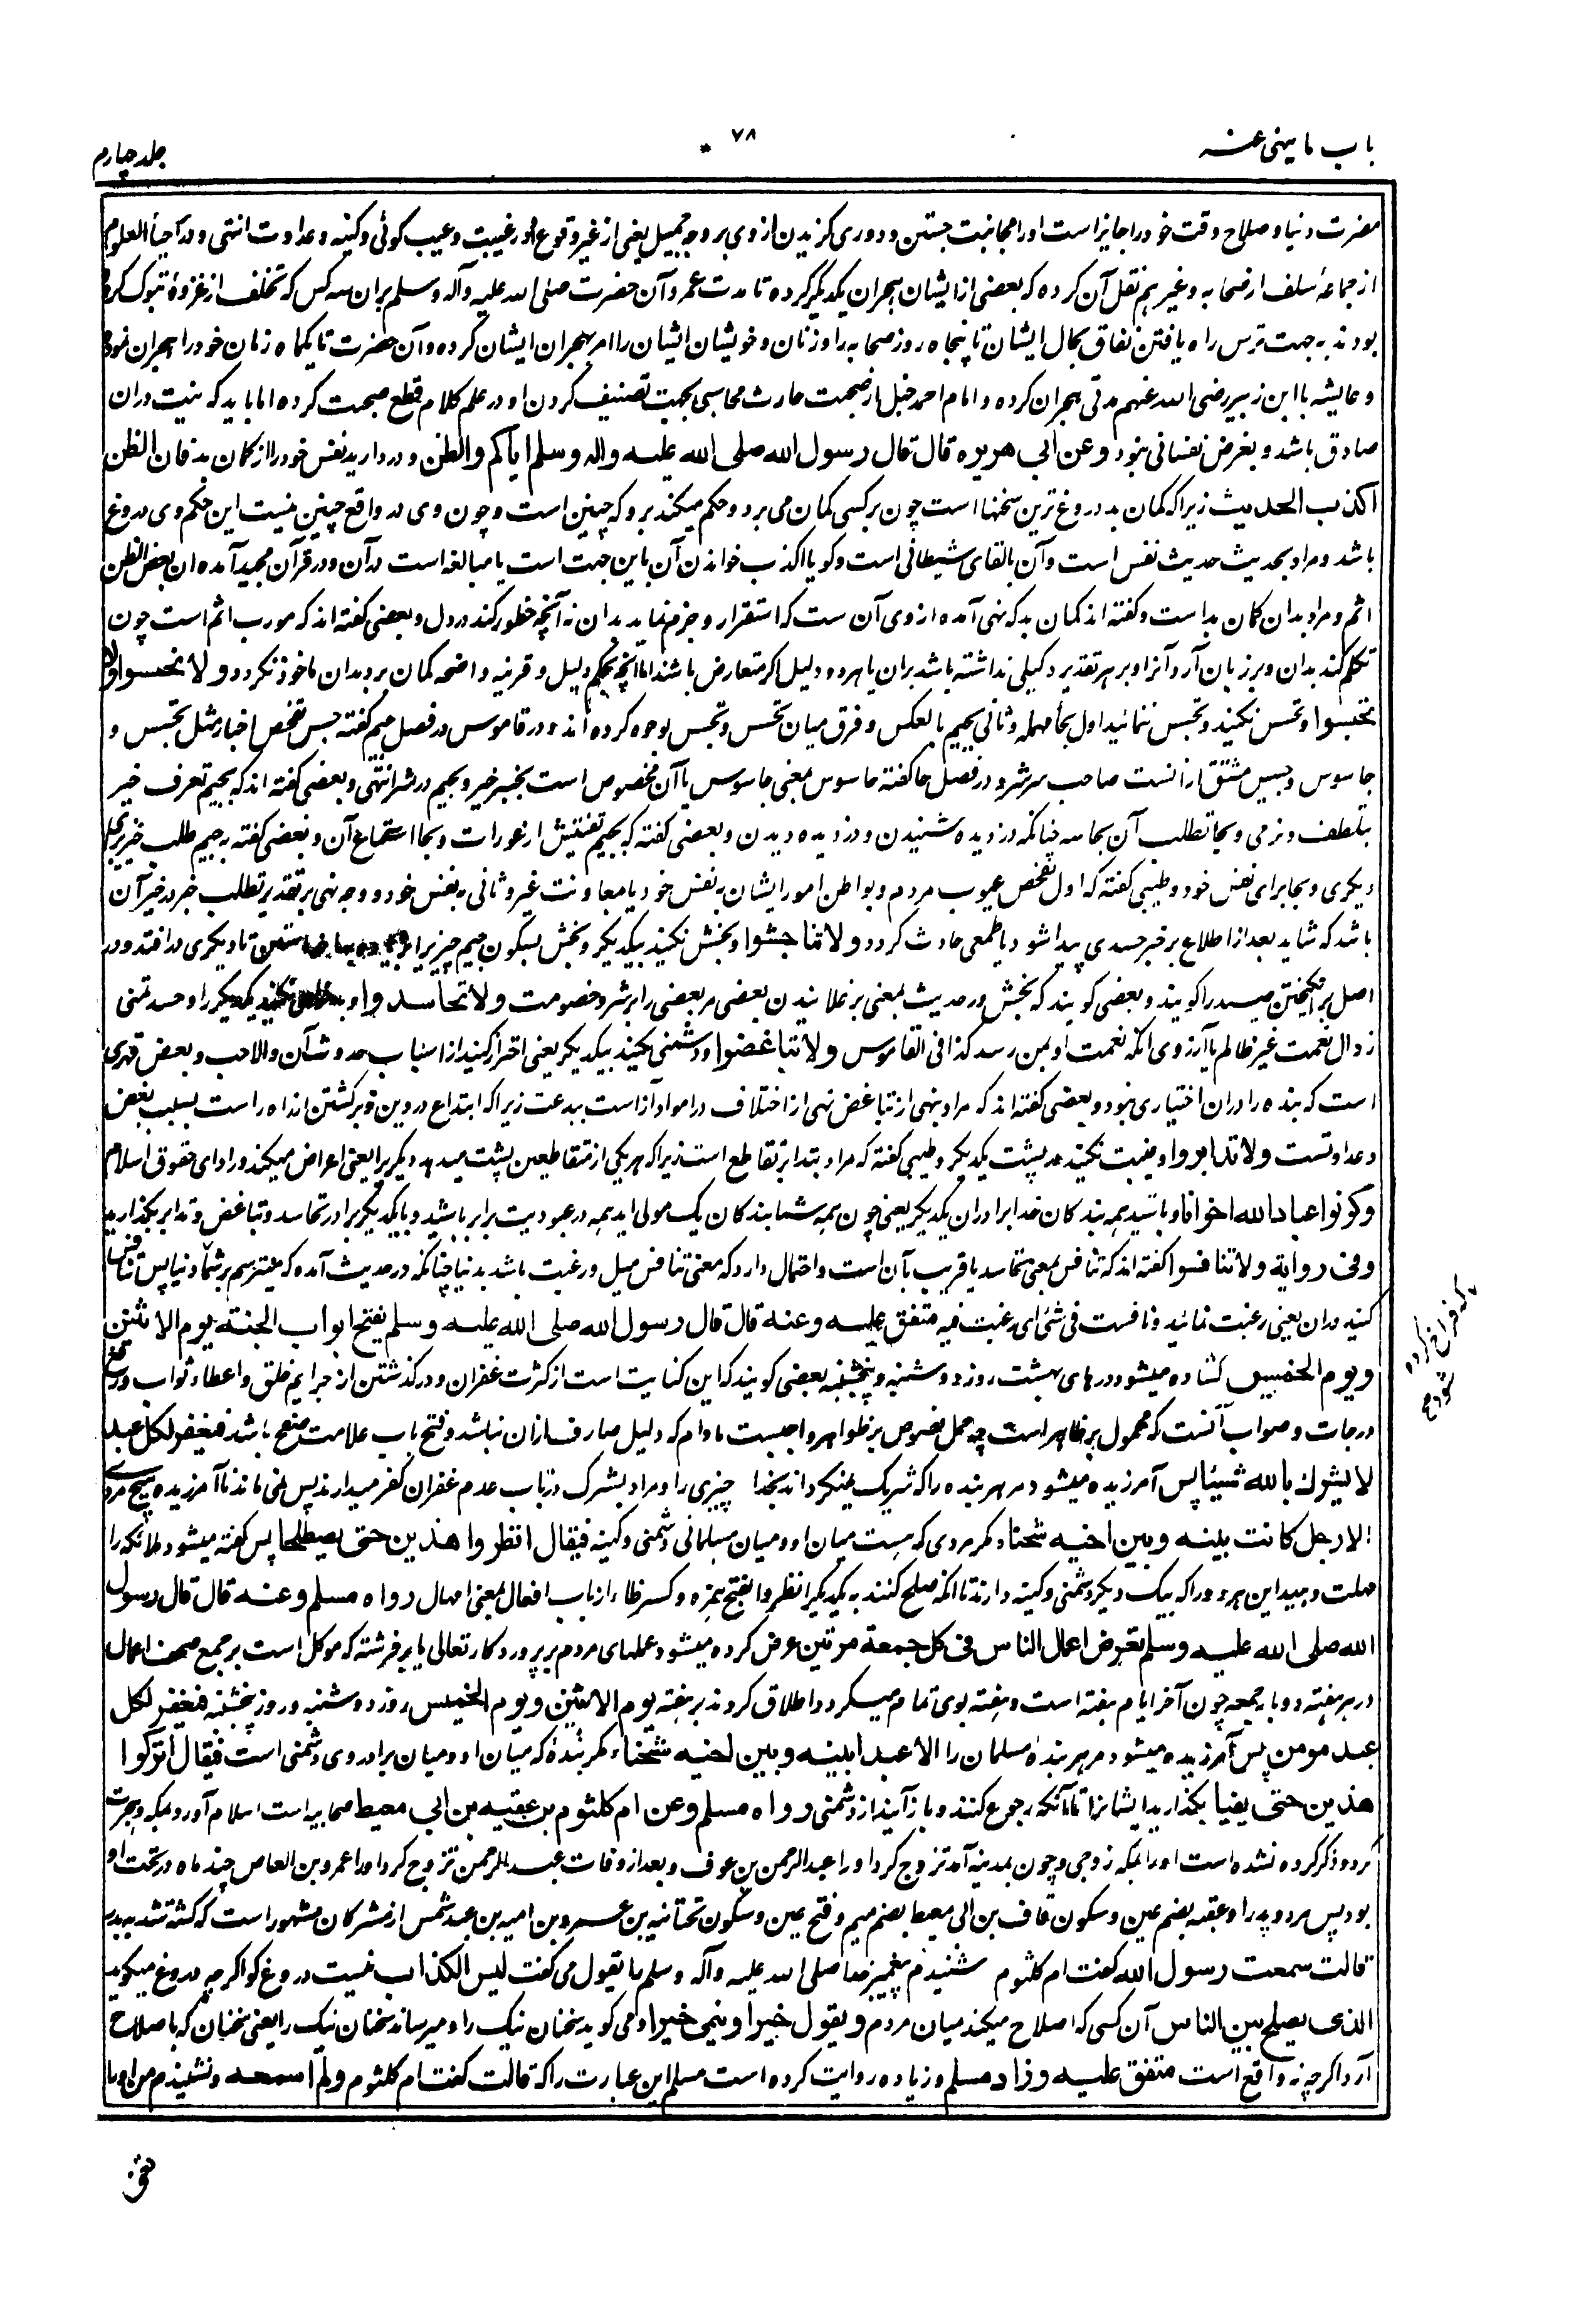 باب ما ینهی عنه
۷۸
جلد چهارم
مضرت دنیا و صلاح وقت خود را جایز است او را مجانبت جستن و دوری گزیدن از وی بر وجه جمیل یعنی از غیر وقوع در غیبت و عیب گوئی و کینه و عداوت انتهی و در احیاء العلوم
از جماعهٔ سلف از صحابه و غیرهم نقل آن کرده که بعضی از ایشان هجران یکدیگر کرده تا مدت عمر و آن حضرت صلی الله علیه وآله وسلم بران سه کس که تخلف از غزوهٔ تبوک کرده
بودند به جهت ترس راه یافتن نفاق بحال ایشان تا پنجاه روز صحابه را و زنان و خویشان ایشان را امر بهجران ایشان کرده و آن حضرت تا یکماه زنان خود را هجران نموده
و عایشه با ابن زبیر رضی الله عنهم مدتی هجران کرده و امام احمد حنبل از صحبت حارث محاسبی بجهت تصنیف کردن او در علم کلام قطع صحبت کرده اما باید که نیت دران
صادق باشد و بغرض نفسانی نبود وعن ابی هریره قال قال رسول الله صلی الله علیه واله وسلم ایاکم والظن و دور دارید نفس خود را از گمان بد فان الظن
اکذب الحدیث زیرا که گمان بد دروغ ترین سخنها است چون بر کسی گمان می برد و حکم میکند برو که چنین است و چون وی در واقع چنین نیست این حکم وی دروغ
باشد و مراد بحدیث حدیث نفس است و آن بالقای شیطانی است و گویا اکذب خواندن آن باین جهت است یا مبالغه است در آن و در قرآن مجید آمده ان بعض الظن
اثم و مراد بدان گمان بد است و گفته اند گمان بد که نهی آمده از وی آن ست که استقرار و جزم نماید بدان نه آنچه خطور کند در دل و بعضی گفته اند که مورب اثم است چون
تکلم کند بدان و بر زبان آرد آنرا و بر هر تقدیر دلیلی نداشته باشد بران یا هر دو دلیل اگر متعارض باشند اما آنچه بحکم دلیل و قرینه واضحه گمان برد بدان ماخوذ نگردد ولا تحسسوا ولا
تجسسوا و تحسس نکنید و تجسس ننمائید اول بحأ مهمله و ثانی بجیم یا بالعکس و فرق میان تحسس و تجسس بوجوه کرده اند و در قاموس در فصل جیم گفته جس تفحص اخبار مثل تجسس و
جاسوس و جسیس مشتق ازانست صاحب سر شر و در فصل حا گفته حاسوس بمعنی جاسوس یا آن مخصوص است بخبر خیر و بجیم در شر انتهی و بعضی گفته اند که بجیم تعرف خبر
بتلطف و نرمی و بحا تطلب آن بحاسه چنانکه دزدیده شنیدن و دزدیده دیدن و بعضی گفته که بجیم تفتیش از عورات و بحا استماع آن و بعضی گفته بجیم طلب خبر برای
دیگری و بحا برای نفس خود و طیبی گفته که اول تفحص عیوب مردم و بواطن امور ایشان بنفس خود یا معاونت غیر و ثانی بنفس خود و وجه نهی بر تقدیر تطلب خبر در خیر آن
باشد که شاید بعد از اطلاع بر خبر حسدی پیدا شود یا طمعی حادث گردد ولا تناجشوا و نجش نکنید بیکدیگر و نجش بسکون جیم چیزی را تا دیگری در افتد و در
اصل برانگیختن صید را گویند و بعضی گویند که نجش در حدیث بمعنی برغلانیدن بعضی مر بعضی را بر شر و خصومت ولا تحاسدوا و نکنید یکدیگر را و حسد تمنی
زوال نعمت غیر ظالم یا آرزوی آنکه نعمت او بمن رسد کذا فی القاموس ولا تباغضوا و دشمنی نکنید بیکدیگر یعنی احتراز کنید از اسباب حدوث آن والا حب و بغض قهری
است که بنده را دران اختیاری نبود و بعضی گفته اند که مراد بنهی از تباغض نهی از اختلاف در اهوا و آراست بدعت زیرا که ابتداع در دین و برگشتن از راه راست بسبب بغض
و عداوتست ولا تدابروا و غیبت نکنید در پشت یکدیگر و طیبی گفته که مراد بتدابر تقاطع است زیرا که هر یکی از متقاطعین پشت میدهد دیگر یرا یعنی اعراض میکند در ادای حقوق اسلام
وکونوا عباد الله اخوانا و باشید همه بندگان خدا برادران یکدیگر یعنی چون همه شما بندگان یک مولی اید همه در عبودیت برابر باشید و با یکدیگر برادر تحاسد و تباغض و تدابر بگذارید
وفی روایة ولا تنافسوا گفته اند که تنافس بمعنی تحاسد یا قریب بآن است و احتمال دارد که معنی تنافس میل و رغبت باشد بدنیا چنانکه در حدیث آمده که میترسم بر شما دنیا پس تنافس
کنید دران یعنی رغبت نمائید و نافست فی شئ ای رغبت فیه متفق علیه وعنه قال قال رسول الله صلی الله علیه وسلم یفتح ابواب الجنة یوم الاثنین
ویوم الخمیس گشاده میشود درهای بهشت روز دوشنبه و پنجشنبه بعضی گویند که این کنایت است از کثرت غفران و درگذشتن از جرایم خلق و اعطاء ثواب و رفع
درجات و صواب آنست که محمول بر ظاهر است چه حمل نصوص بر ظواهر واجبست مادام که دلیل صارف ازان نباشد و فتح باب علامت صفح باشد فیغفر لکل عبد
لا یشرك بالله شیئا پس آمرزیده میشود مر هر بنده را که شریک نمیگرداند بخدا چیزی را و مراد بشرک در باب عدم غفران کفر میدارند پس نمی ماند نا آمرزیده هیچ مردی
الا رجل کانت بینه وبین اخیه شحناء مگر مردی که هست میان او و میان مسلمانی دشمنی و کینه فیقال انظروا هذین حتی یصطلحا پس گفته میشود ملائکه را
مهلت دهید این هر دو را که بیک دیگر دشمنی و کینه دارند تا آنکه صلح کنند به یکدیگر انظروا بفتح همزه و کسر ظاء از باب افعال بمعنی امهال رواه مسلم وعنه قال قال رسول
الله صلی الله علیه وسلم تعرض اعمال الناس فی کل جمعة مرتین عرض کرده میشود عملهای مردم بر پروردگار تعالی یا بر فرشته که موکل است بر جمع صحف اعمال
در هر هفته دو بار جمعه چون آخر ایام هفته است و هفته بوی تمام میگردد اطلاق کردند بر هفته یوم الاثنین ویوم الخمیس روز دوشنبه و روز پنجشنبه فیغفر لکل
عبد مومن پس آمرزیده میشود مر هر بندهٔ مسلمان را الا عبدا بینه وبین اخیه شحناء مگر بندهٔ که میان او و میان برادر وی دشمنی است فیقال اترکوا
هذین حتی یفیأ بگذارید ایشانرا تا آنکه رجوع کنند و باز آیند از دشمنی رواه مسلم وعن ام کلثوم بن عقبه بن ابی معیط صحابیه است اسلام آورد بمکه و هجرت
کرد و ذکر کرده نشده است او را بمکه زوجی و چون بمدینه آمد تزوج کرد او را عبدالرحمن بن عوف و بعد از وفات عبدالرحمن تزوج کرد او را عمرو بن العاص چند ماه در تحت او
بود پس مرد و پدر او عقبه بضم عین و سکون قاف بن ابی معیط بضم میم و فتح عین و سکون تحتانیه بن عمرو بن امیه بن عبد شمس از مشرکان مشهور است که کشته شد به بدر
قالت سمعت رسول الله گفت ام کلثوم شنیدم پیغمبر خدا صلی الله علیه وآله وسلم یقول می گفت لیس الکذاب نیست دروغ گو اگر چه دروغ میگوید
الذی یصلح بین الناس آن کسی که اصلاح میکند میان مردم ویقول خیرا وینمی خیرا و می گوید سخنان نیک را و میرساند سخنان نیک را یعنی سخنان که باصلاح
آرد اگرچه نه واقع است متفق علیه وزاد مسلم و زیاده روایت کرده است مسلم این عبارت را که قالت گفت ام کلثوم ولم اسمعه و نشنیدم من او را
که فراخ کرده
شود